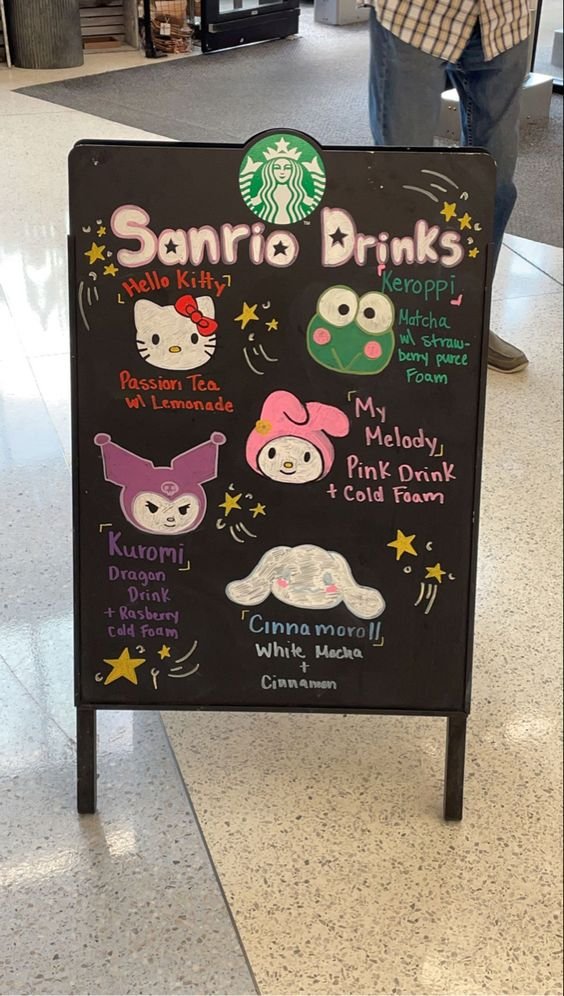 Sanrio Drinks
Hello Kitty
Passion Tea
w/ Lemonade
Keroppi
Matcha
w/ straw-
berry puree
Foam
My
Melody
Pink Drink
+ Cold Foam
Kuromi
Dragon
Drink
+ Rasberry
Cold Foam
Cinnamoroll
White Mocha
+
Cinnamon